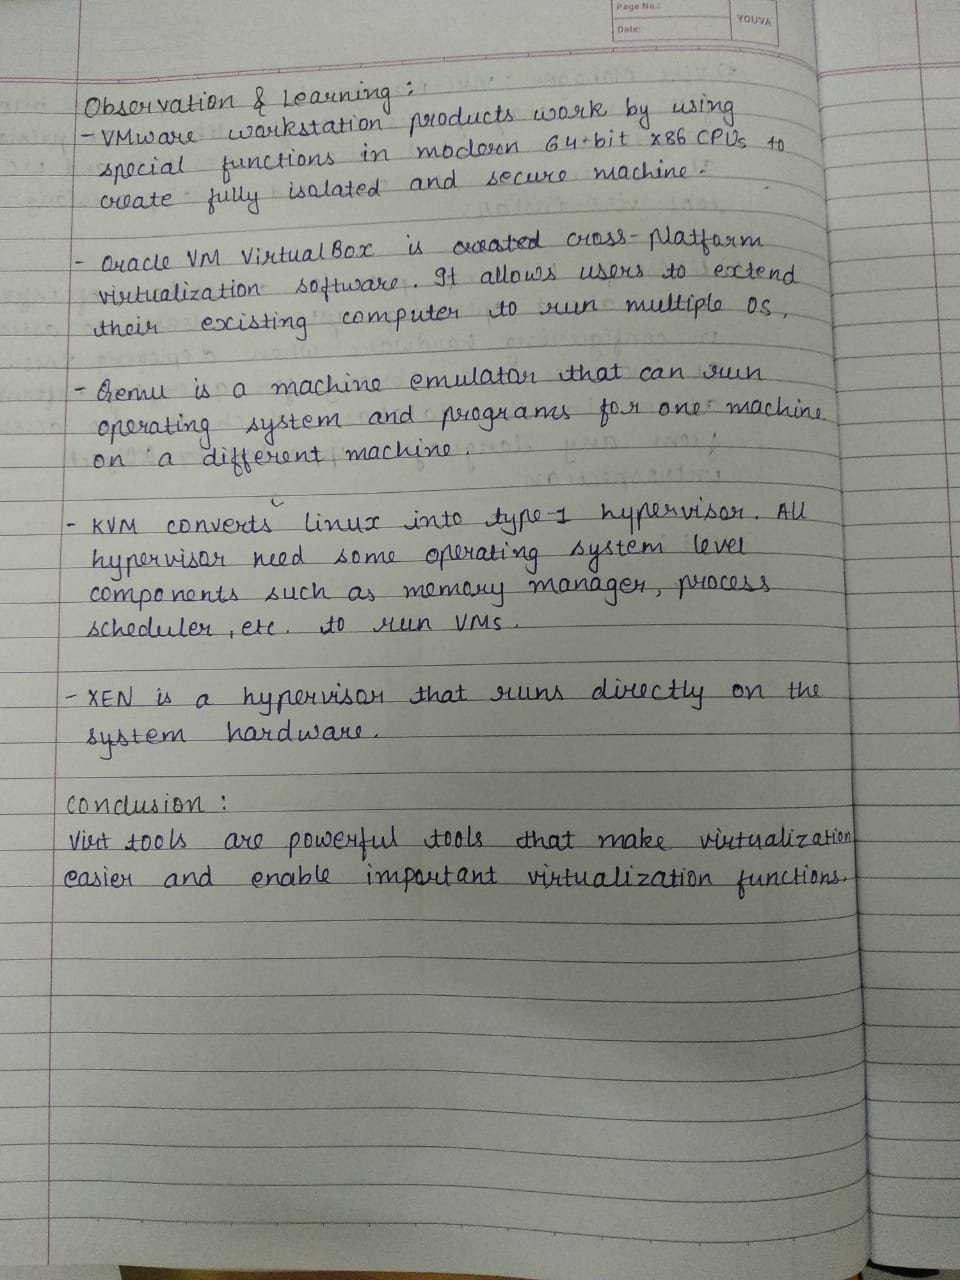 Page No.:
Date:
YOUVA
Observation & Learning :
- VMware workstation products work by using
special functions in modern 64-bit x86 CPUs to
create fully isolated and secure machine.
- Oracle VM VirtualBox is created cross-platform
virtualization software. It allows users to extend
their existing computer to run multiple OS.
- Qemu is a machine emulator that can run
operating system and programs for one machine
on a different machine.
- KVM converts linux into type-1 hypervisor. All
hypervisor need some operating system level
components such as memory manager, process
scheduler, etc. to run VMs.
- XEN is a hypervisor that runs directly on the
system hardware.
Conclusion :
Virt tools are powerful tools that make virtualization
easier and enable important virtualization functions.